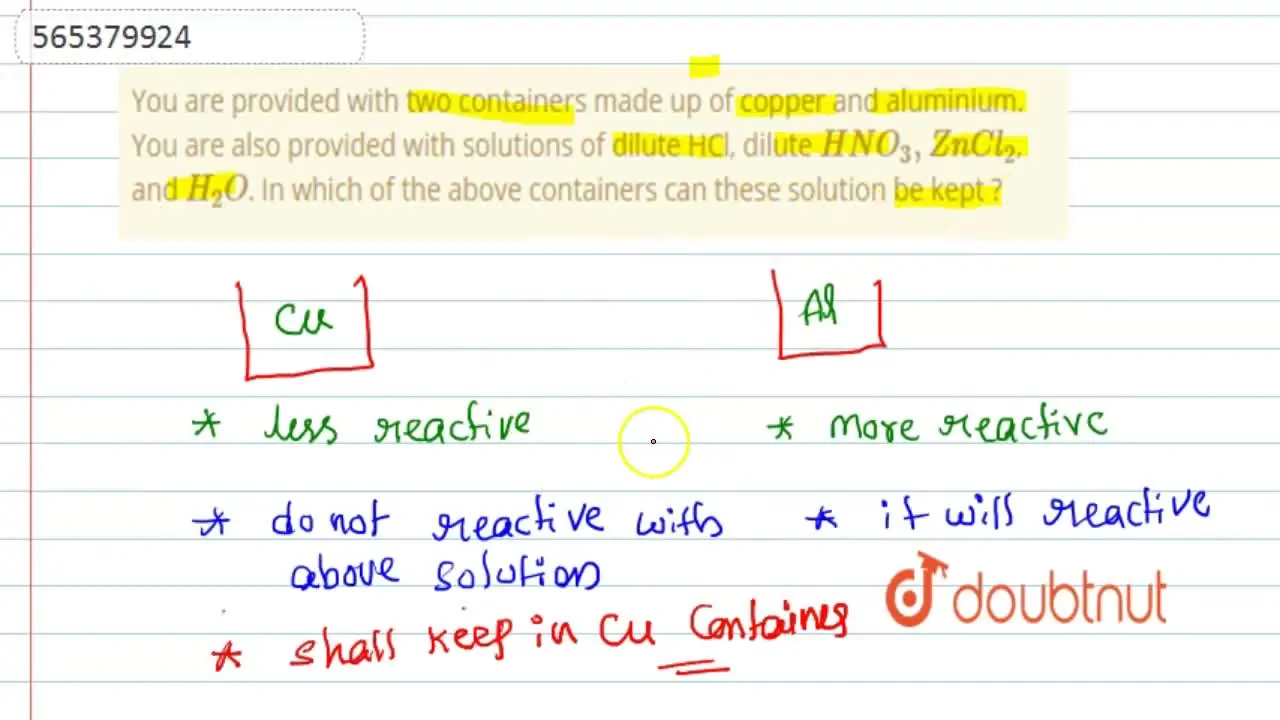 565379924
You are provided with two containers made up of copper and aluminium.
You are also provided with solutions of dilute HCl, dilute HNO₃, ZnCl₂,
and H₂O. In which of the above containers can these solution be kept ?
Cu
Al
* less reactive
* more reactive
* do not reactive with
above solution
* it will reactive
* shall keep in Cu Container
doubtnut